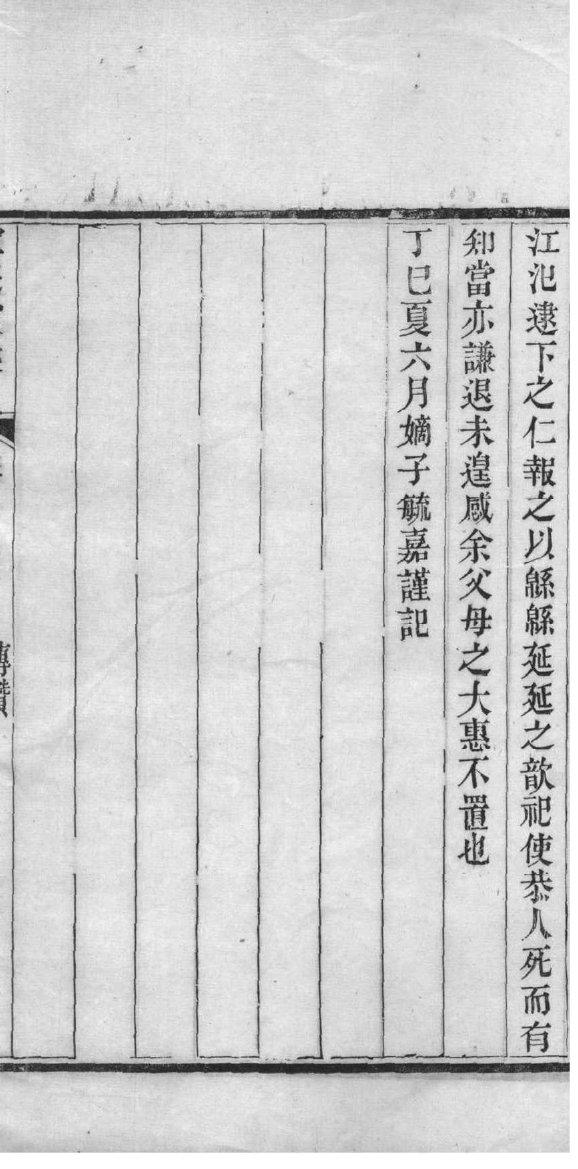 江汜逮下之仁報之以緜緜延延之歆祀使恭人死而有
知當亦謙退未遑感余父母之大惠不置也
丁巳夏六月嫡子毓嘉謹記
傳贊